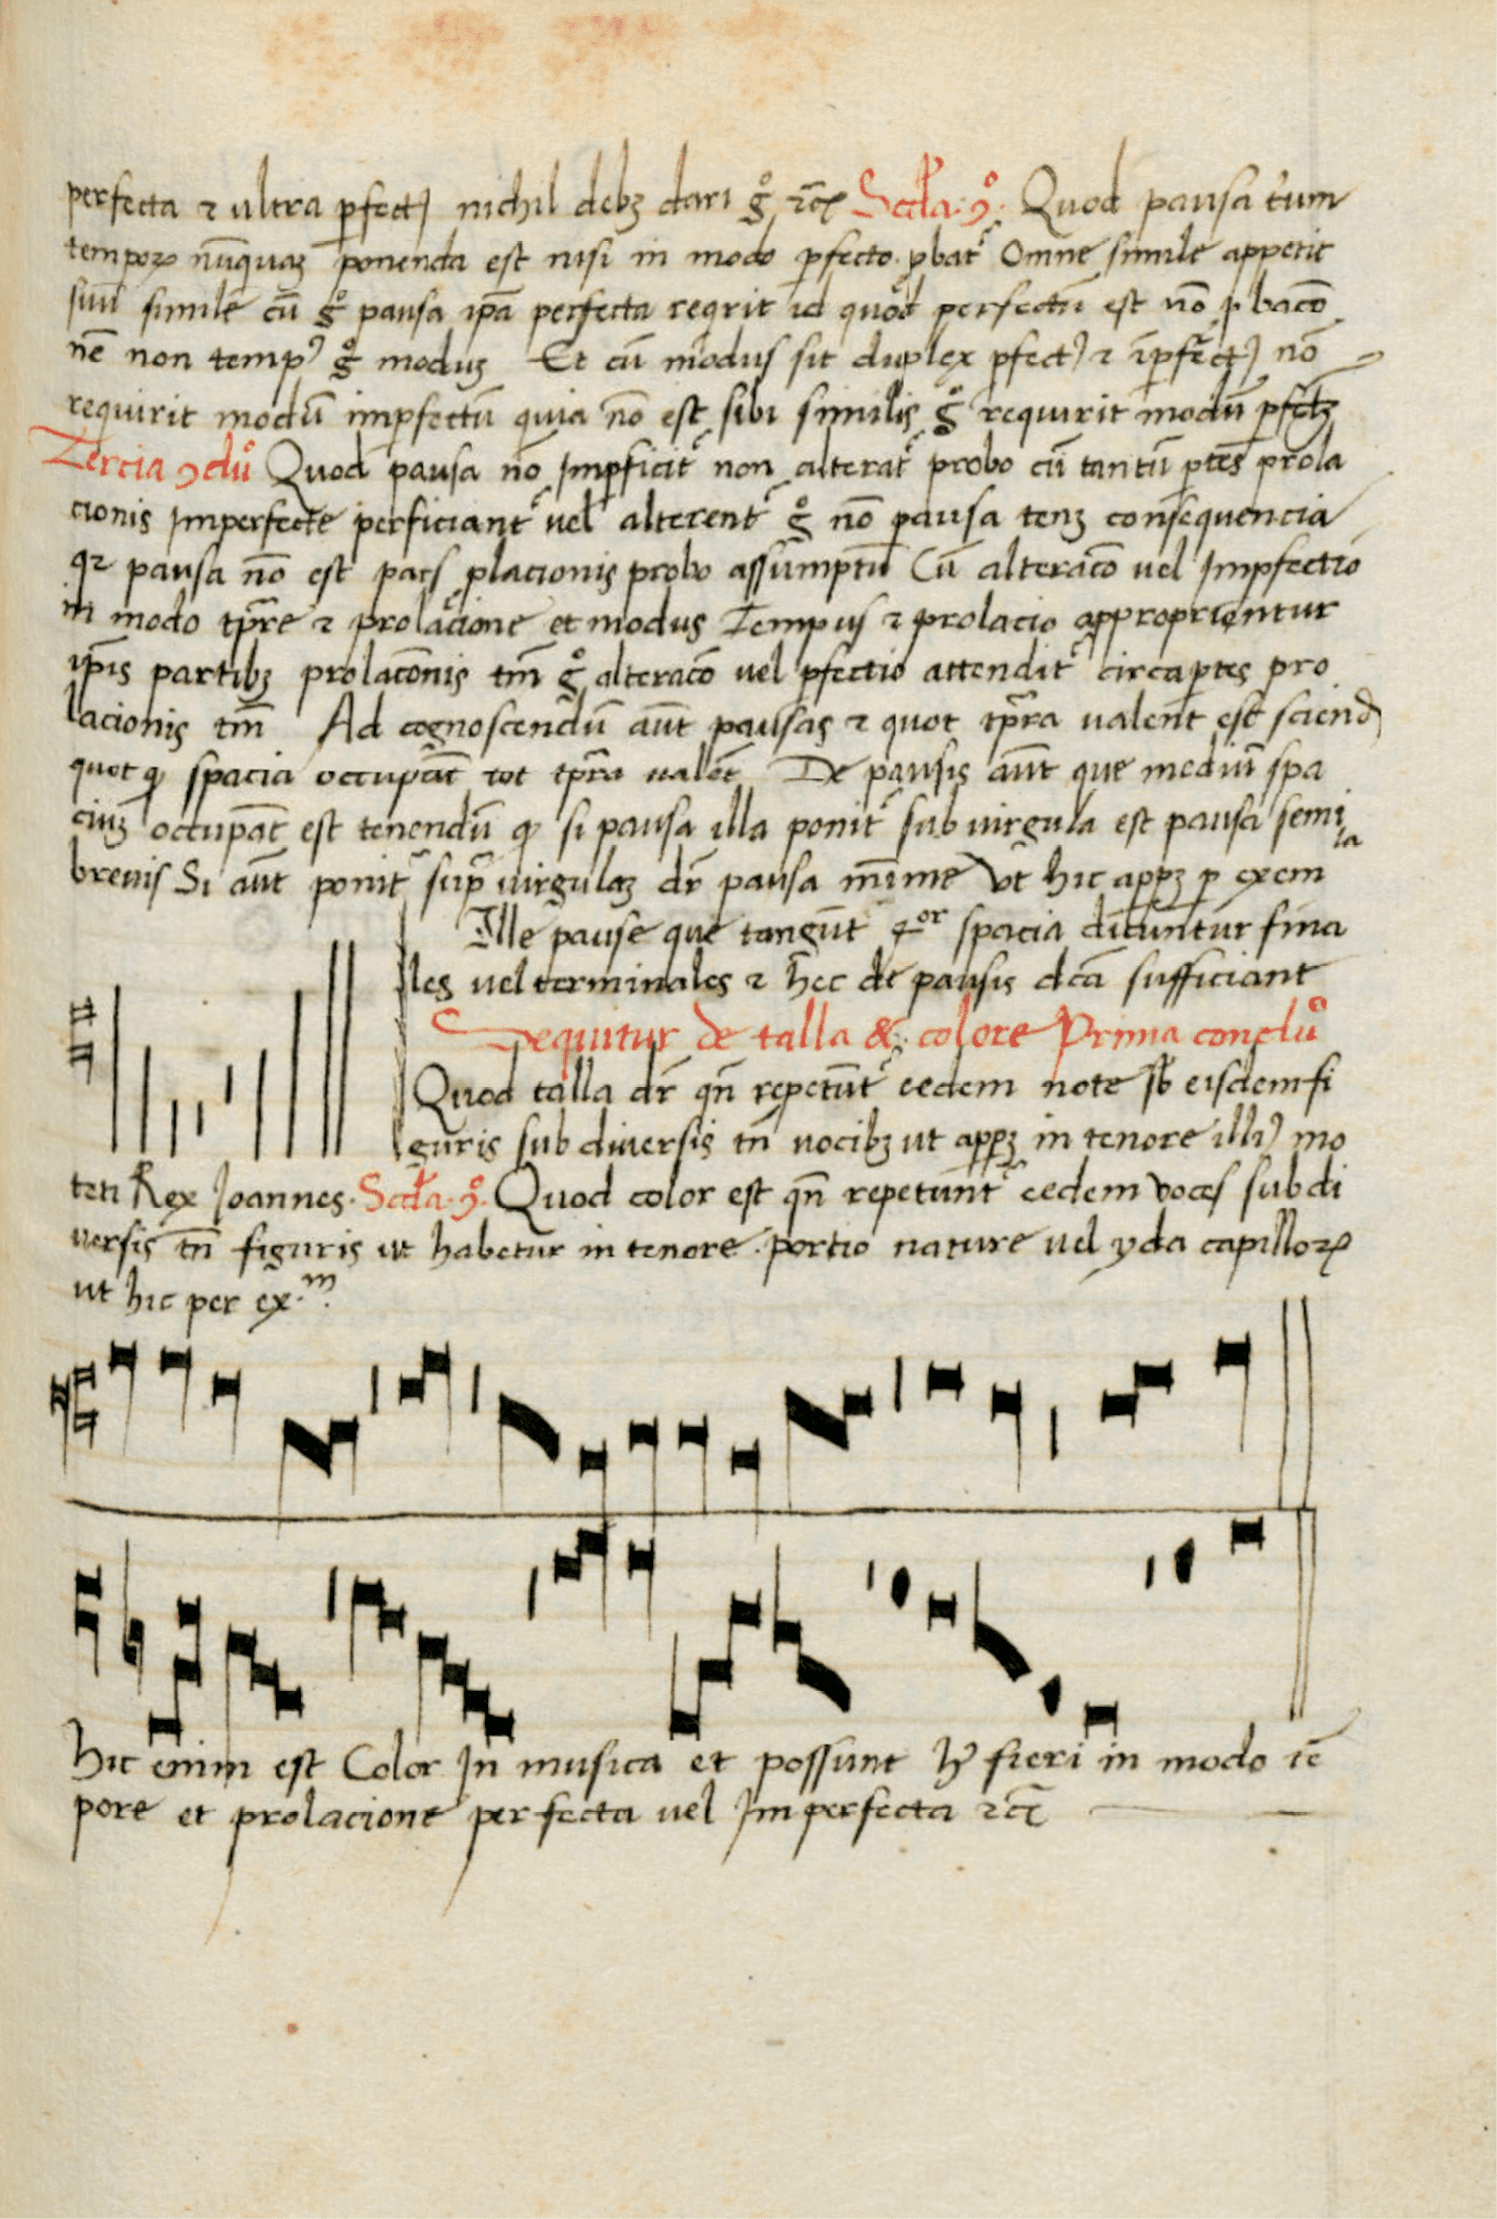 perfecta ⁊ ultra ꝑfectꝰ nichil debꝫ dari gͦ ⁊cꝭ Scđa ꝯͦ. Quod pausa t͛ium
tempoꝝ nūquaꝫ ponenda est nisi in modo ꝑfecto. ꝓbatᷣ Omne simile appetit
suū simile cū gͦ pausa ip̄a perfecta reqͥrit id quod perfectū est nō ꝓbac̄o
nē non tempꝰ gͦ modus Et cū modus sit duplex ꝑfectꝰ ⁊ īꝑfectꝰ nō
requirit modū imꝑfectū quia nō est sibi similis gͦ requirit modū ꝑfc̄tꝫ
Tercia ꝯcluͦ Quod pausa nō Imꝑficitᷣ non alteratᷣ probo cū tantū ꝑtes prola
cionis Imperfecte perficiantᷣ vel alterentᷣ gͦ nō pausa tenꝫ consequencia
qꝛ pausa nō est pars ꝓlacionis probo assumptū Cū alterac̄o vel Imꝑfectio
in modo tp̄re ⁊ prolacione et modus Tempus ⁊ prolacio approprientur
ip̄is partibꝫ prolac̄onis tm̄ gͦ alterac̄o vel ꝑfectio attenditᷣ circa ꝑtes pro
lacionis tm̄ Ad cognoscendū aūt pausas ⁊ quot tp̄ra valent est sciend
quot ꝙ spacia occupāt tot tp̄ra valēt De pausis aūt que mediū spa
ciuꝫ occupāt est tenendū ꝙ si pausa illa ponitᷣ sub virgula est pausa semi
brevis Si aūt ponitᷣ supͣ virgulaꝫ dr̄ pausa mīime vt hic apꝑꝫ ꝑ exem
la
Ille pause que tangūt 4or spacia dicuntur fina
les vel terminales ⁊ hec de pausis dc̄a sufficiant
Sequitur de talla & colore Prima concluͦ
Quod talla dr̄ qn̄ repetūtᷣ eedem note sb̄ eisdem fi
guris sub diversis tn̄ vocibꝫ ut apꝑꝫ in tenore illiꝰ mo
teti Rex Joannes. Scđa. ꝯͦ. Quod color est qn̄ repetuntᷣ eedem voces sub di
versis tn̄ figuris ut habetur in tenore. portio nature vel yda capilloꝝ
ut hic per ex.m
Hic enim est Color In musica et possunt hij fieri in modo tē
pore et prolacione perfecta vel Imperfecta ⁊cꝭ